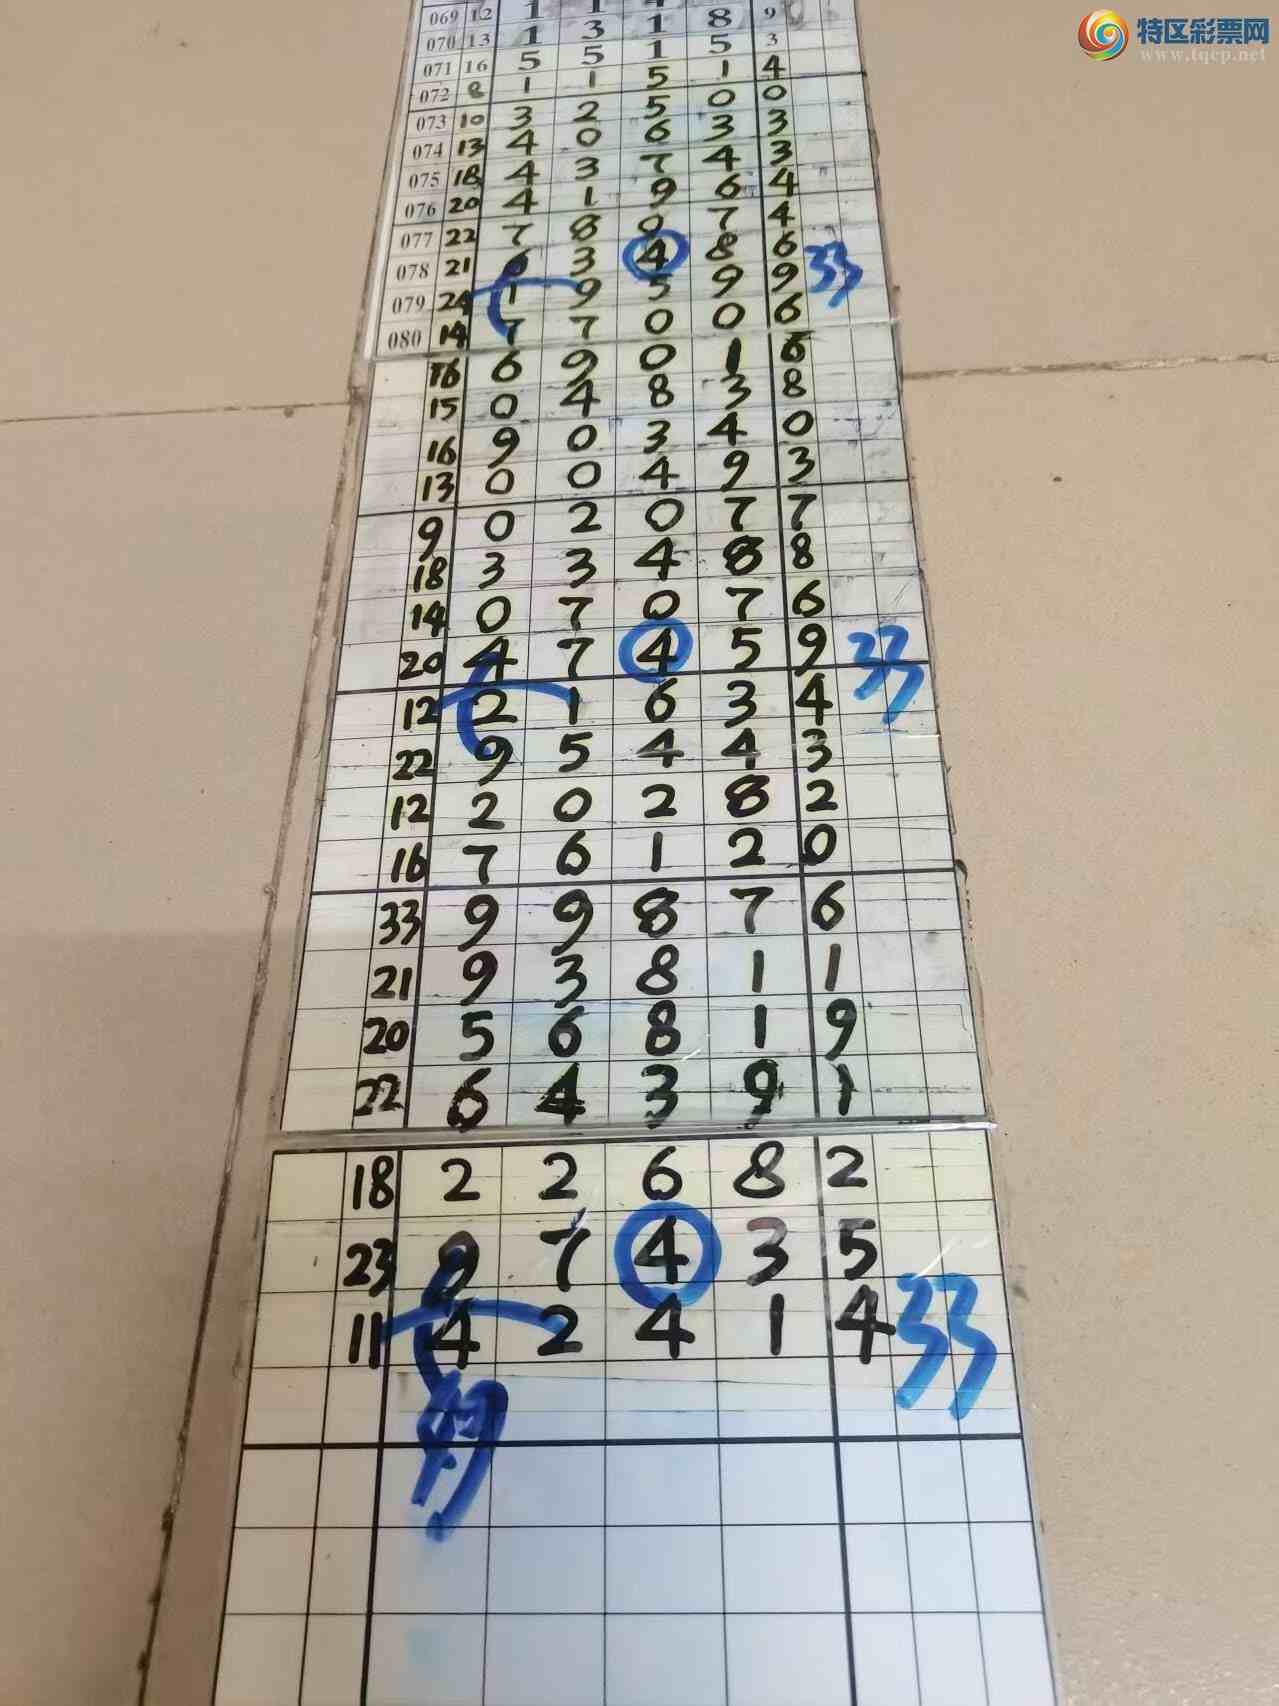 特区彩票网
www.tqcp.net
069 12 1 1 4 8 9
070 13 1 3 1 8 3
071 16 5 5 1 5 4
072 8 1 1 5 1 0
073 10 3 2 5 0 3
074 13 4 0 6 3 3
075 18 4 3 7 4 4
076 20 4 1 9 6 4
077 22 7 8 0 7 6
078 21 6 3 4 8 9 33
079 24 1 9 5 9 6
080 14 7 7 0 0 6
16 6 9 0 1 8
15 0 4 8 3 0
16 9 0 3 4 3
13 0 0 4 9 7
9 0 2 0 7 8
18 3 3 4 8 6
14 0 7 0 7 9
20 4 7 4 5 33
12 2 1 6 3 4
22 9 5 4 4 3
12 2 0 2 8 2
16 7 6 1 2 0
33 9 9 8 7 6
21 9 3 8 1 1
20 5 6 8 1 9
22 6 4 3 9 1
18 2 2 6 8 2
23 9 7 4 3 5
11 4 2 4 1 4 33